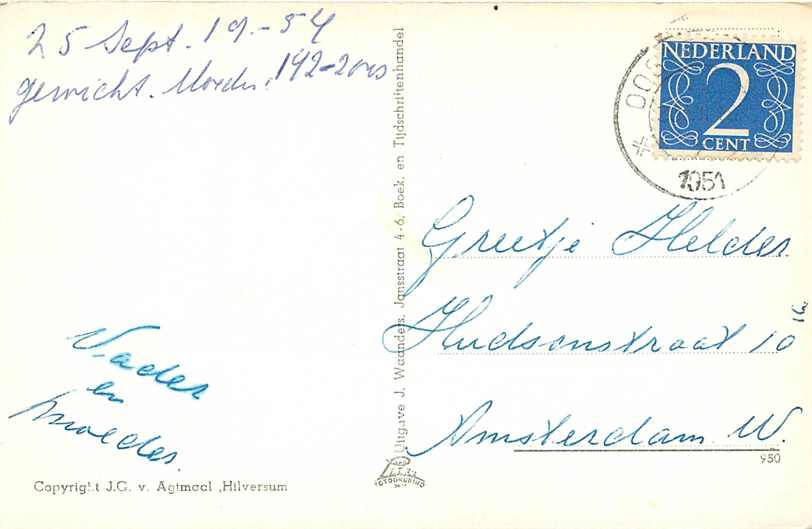 25 Sept. 19-54
gewicht. Moeder. 142-2ons
Vader
en
Moeder.
Copyright J.G. v. Agtmaal ,Hilversum
Uitgave J. Waanders, Jansstraat 4-6, Boek. en Tijdschriftenhandel
NEDERLAND
2
CENT
1951
Greetje Helder
Hudsonstraat 10
Amsterdam W.
950